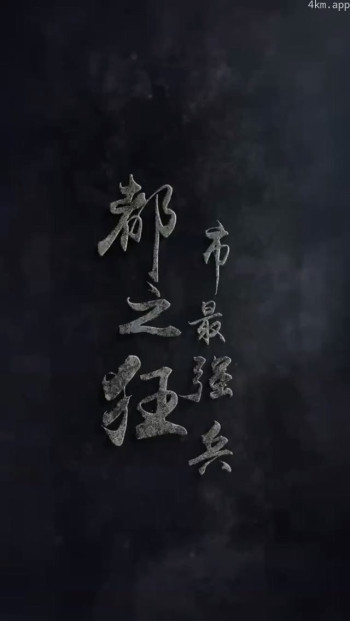 4km.app
都市之最强狂兵